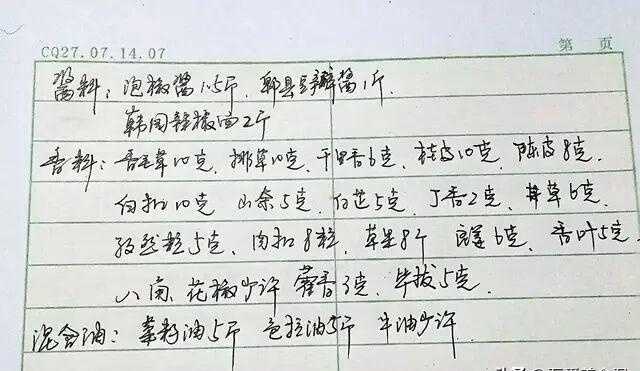 CQ27.07.14.07 第 页
酱料：泡椒酱1.5斤．郫县豆瓣酱1斤．
韩国辣椒面2斤
香料：香毛草10克，排草10克，千里香6克，桂皮10克，陈皮8克．
白扣10克 山奈5克 白芷5克 丁香2克 甘草6克．
孜然粒5克、肉扣8粒，草果8个 良姜6克、香叶5克
八角、花椒少许 藿香3克，毕拔5克．
混合油：菜籽油5斤 色拉油5斤 牛油少许